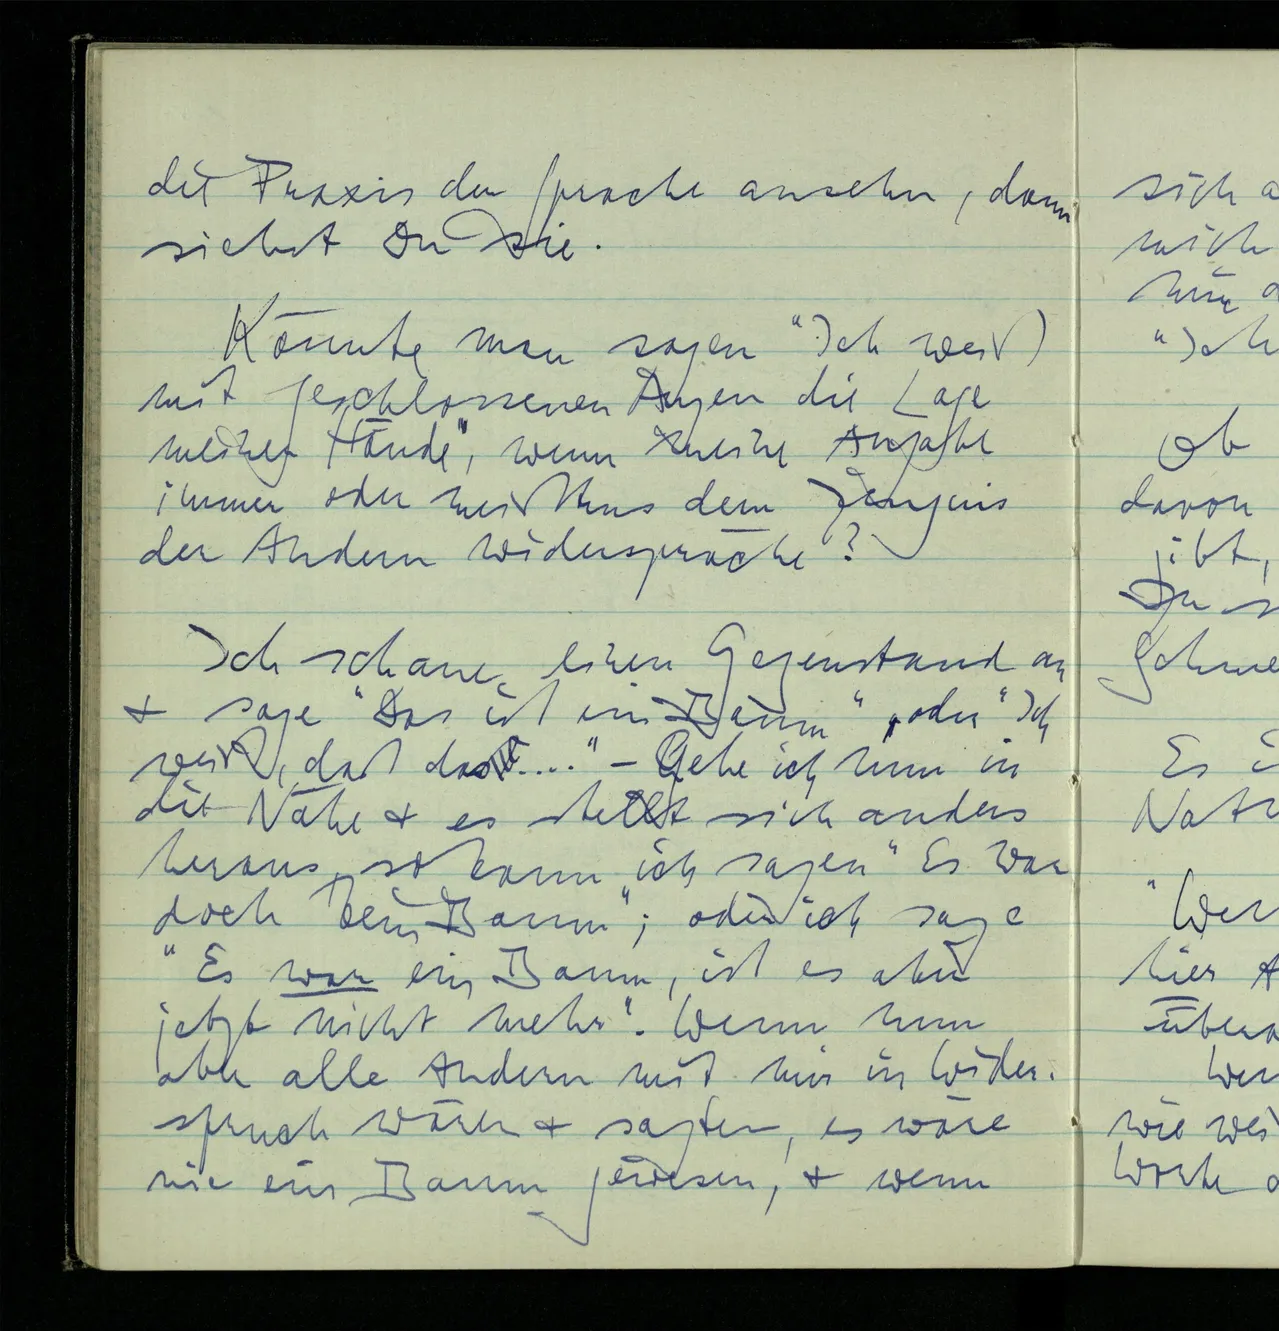 die Praxis der Sprache ansehn, dann
siehst Du sie.
Könnte man sagen "Ich weiß
mit geschlossenen Augen die Lage
meiner Hände", wenn meine Angabe
immer oder meistens dem Zeugnis
der Andern widerspräche?
Ich schaue einen Gegenstand an
& sage "Das ist ein Baum", oder "Ich
weiß, daß das ...." – Gehe ich nun in
die Nähe & es stellt sich anders
heraus, so kann ich sagen "Es war
doch kein Baum"; oder ich sage
"Es war ein Baum, ist es aber
jetzt nicht mehr". Wenn nun
aber alle Andern mit mir in Wider-
spruch wären & sagten, es wäre
nie ein Baum gewesen, & wenn
sich a
mich
nun
"Ich
Ob
davon
gibt,
Du s
Schme
Es i
Natu
"Wen
hier
übera
Wen
wie wei
Worte